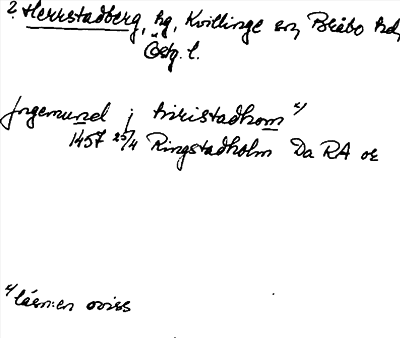 2 Herrstadberg, hg, Kvillinge sn, Bråbo hd,
Östg. l.
Jngemund j hiristadhom 1)
1457 25/4 Ringstadholm Da RA or
1) läsn:en oviss